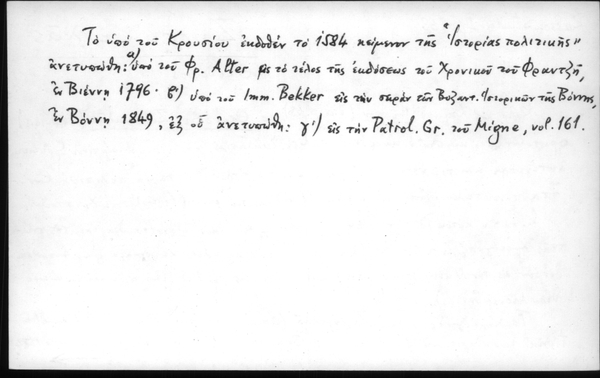 Τὸ ὑπὸ τοῦ Κρουσίου ἐκδοθὲν τὸ 1584 κείμενον τῆς "Ἱστορίας πολιτικῆς"
ἀνετυπώθη: α) ὑπὸ τοῦ Φρ. Alter εἰς τὸ τέλος τῆς ἐκδόσεως τοῦ Χρονικοῦ τοῦ Φραντζῆ,
ἐν Βιέννῃ 1796· β') ὑπὸ τοῦ Imm. Bekker εἰς τὴν σειρὰν τῶν Βυζαντ. Ἱστορικῶν τῆς Βόννης,
ἐν Βόννῃ 1849, ἐξ οὗ ἀνετυπώθη: γ') εἰς τὴν Patrol. Gr. τοῦ Migne, vol. 161.